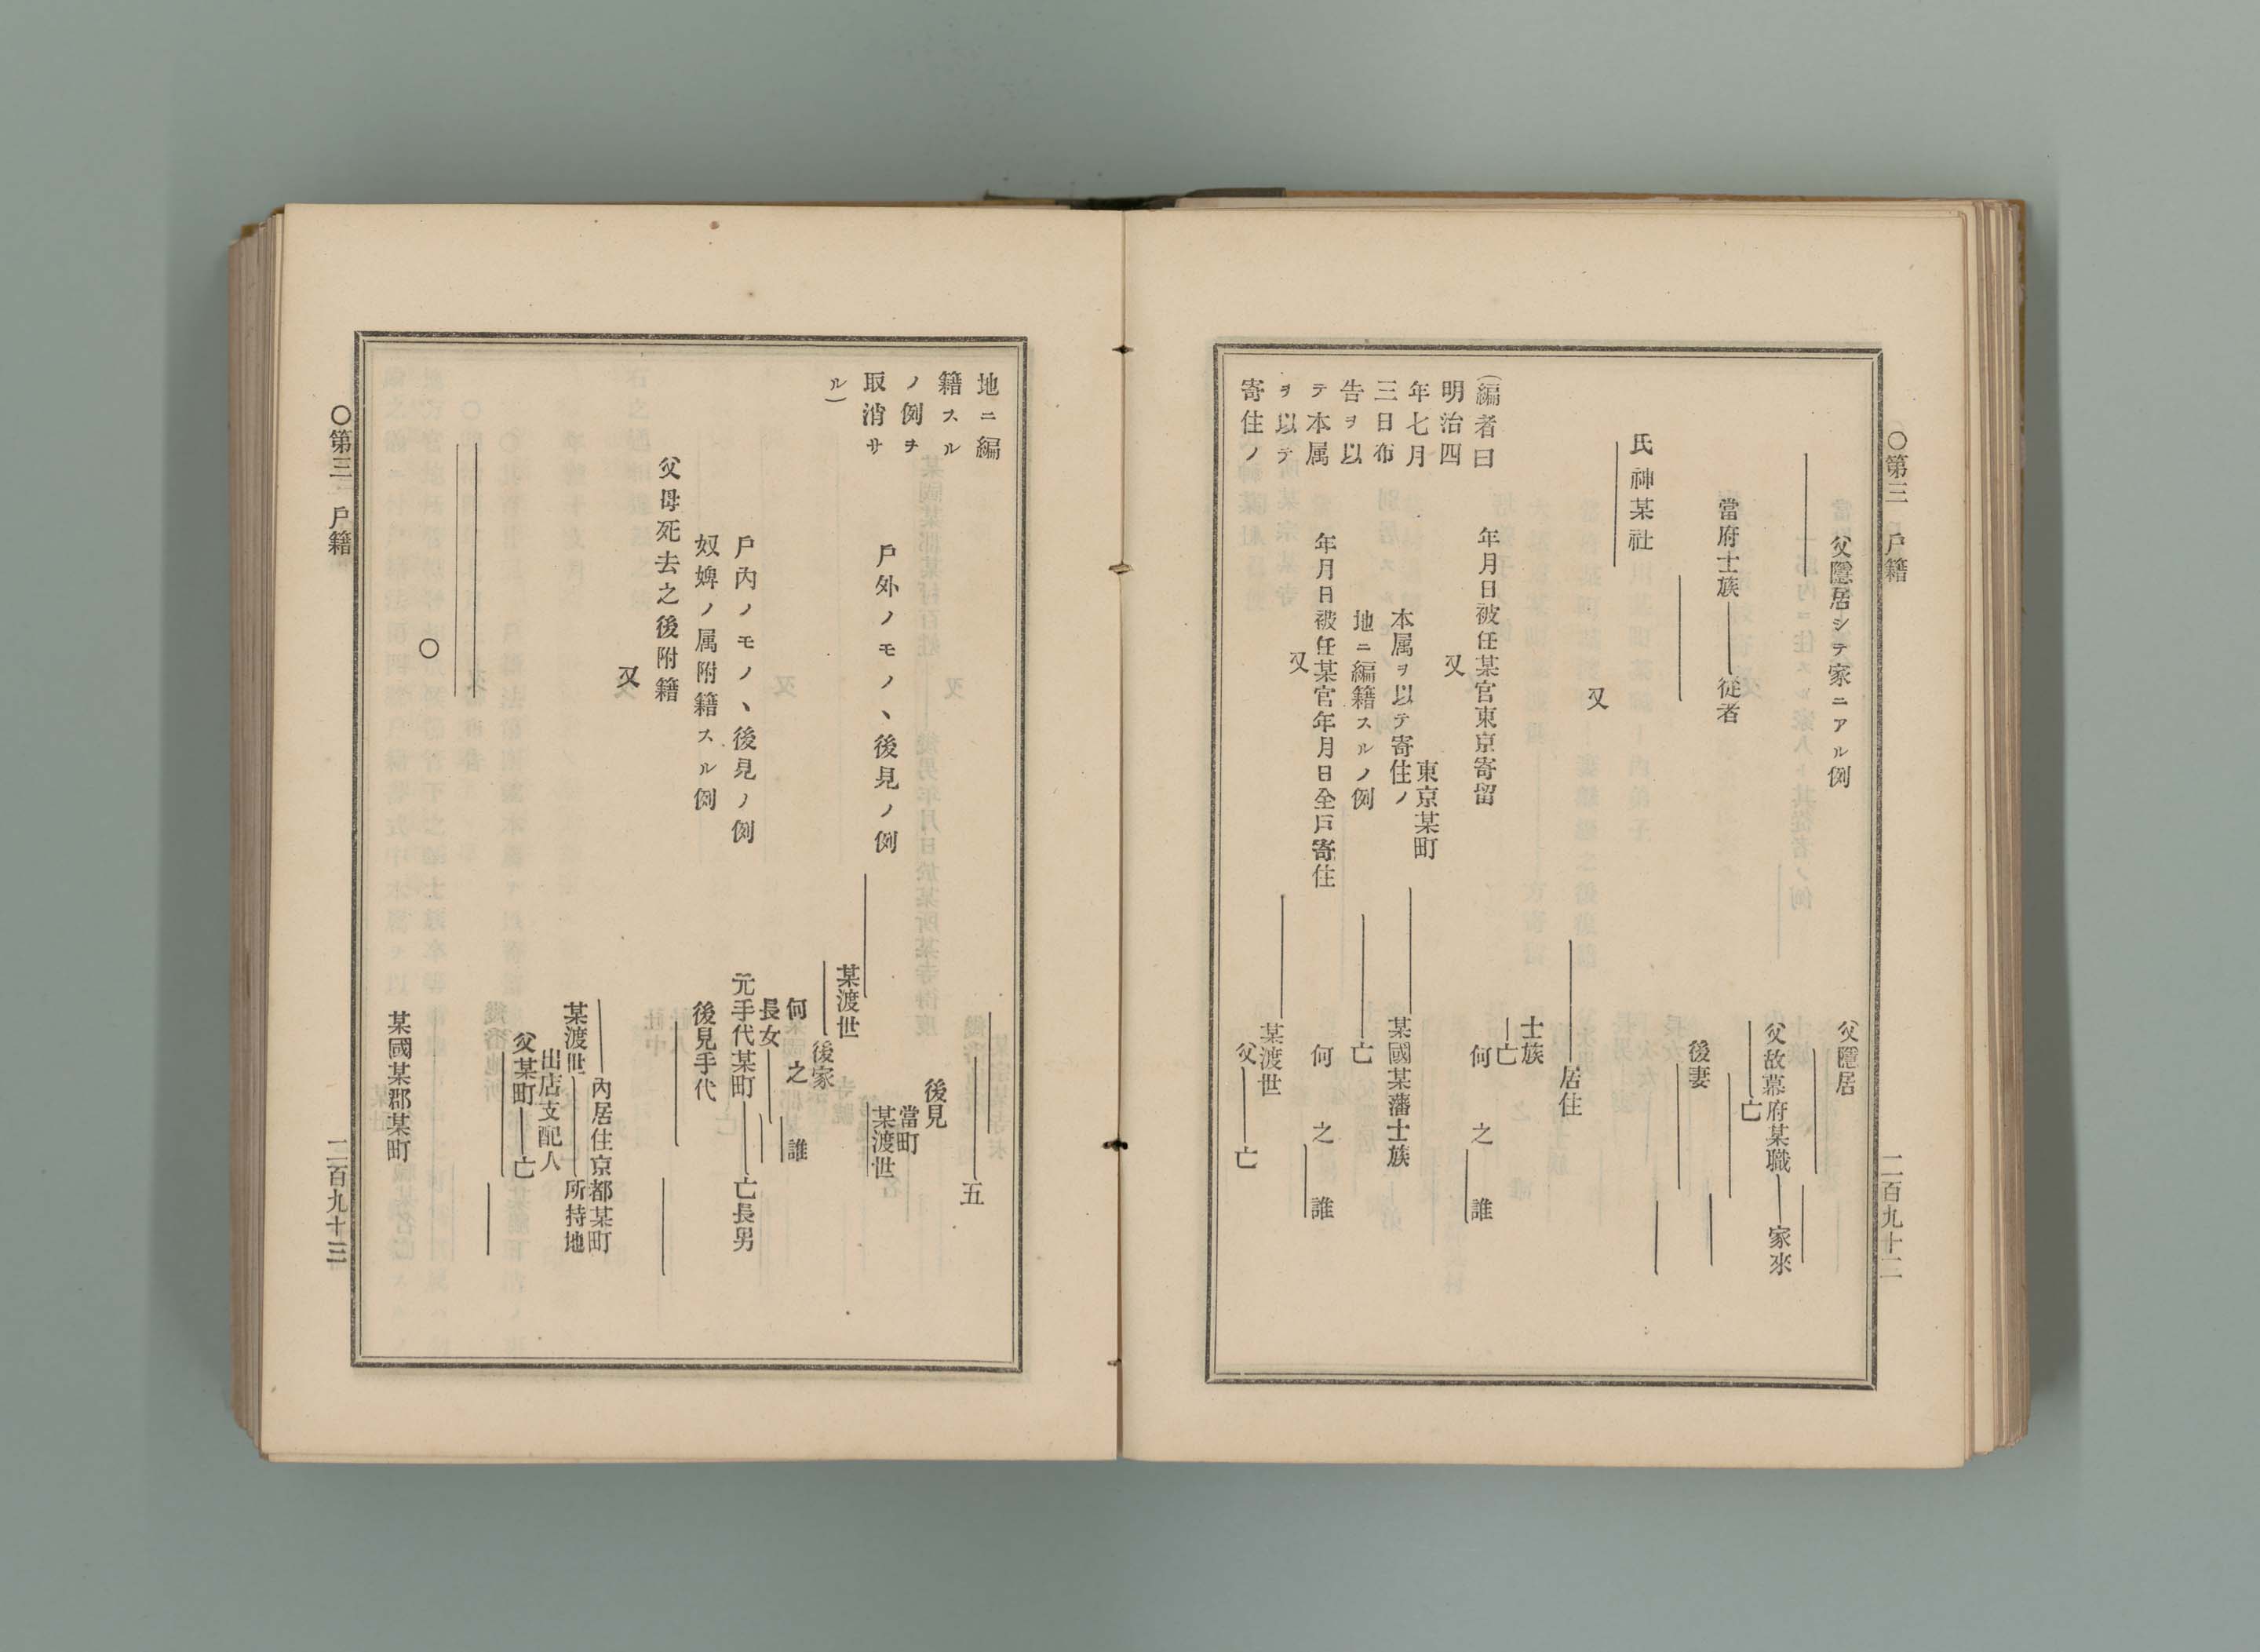 ○第三　戶籍
二百九十二
父隱居シテ家ニアル例
父隱居
父故幕府某職━━家來
亡
當府士族━━従者
後妻
氏神某社
又
居住
士族
亡
(編者曰
明治四
年七月
三日布
告ヲ以
テ本属
ヲ以テ
寄住ノ
年月日被任某官東京寄留
何之誰
又
東京某町
本属ヲ以テ寄住ノ
某國某藩士族
地ニ編籍スルノ例
亡
年月日被任某官年月日全戶寄住
何之誰
又
某渡世
父━━亡
地ニ編
籍スル
ノ例ヲ
取消サ
ル)
五
後見
當町
某渡世
戶外ノモノヽ後見ノ例
某渡世
後家
何之誰
長女
戶內ノモノヽ後見ノ例
元手代某町━━亡長男
奴婢ノ属附籍スル例
後見手代
父母死去之後附籍
又
內居住京都某町
某渡世━━所持地
出店支配人
父某町━━亡
○
某國某郡某町
○第三　戶籍
二百九十三